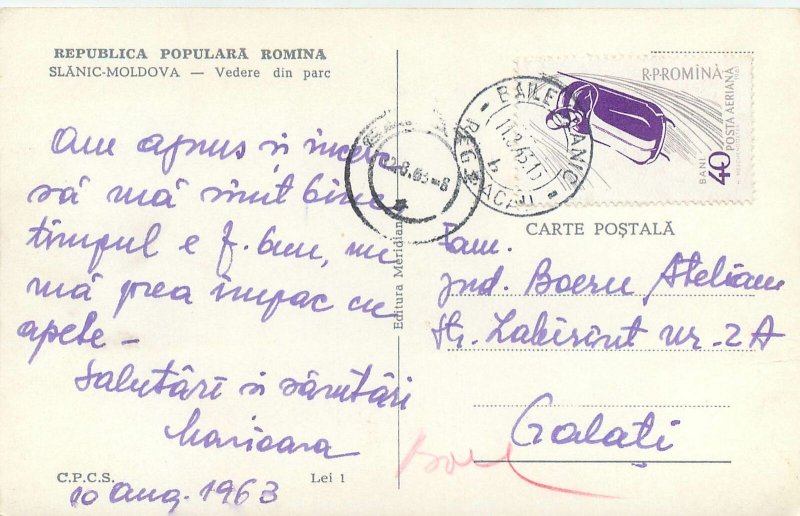 REPUBLICA POPULARĂ ROMÎNA
SLĂNIC-MOLDOVA — Vedere din parc
Am ajuns și încerc
să mă simt bine
timpul e f. bun, nu
mă prea împac cu
apele —
Salutări și sărutări
Marioara
C.P.C.S. Lei 1
10 aug. 1963
Editura Meridiane
R.P.ROMÎNĂ
POSTA AERIANA
BANI 40
CARTE POȘTALĂ
Fam.
Jud. Boeru Stelian
Str. Labirint nr. 2A
Galați